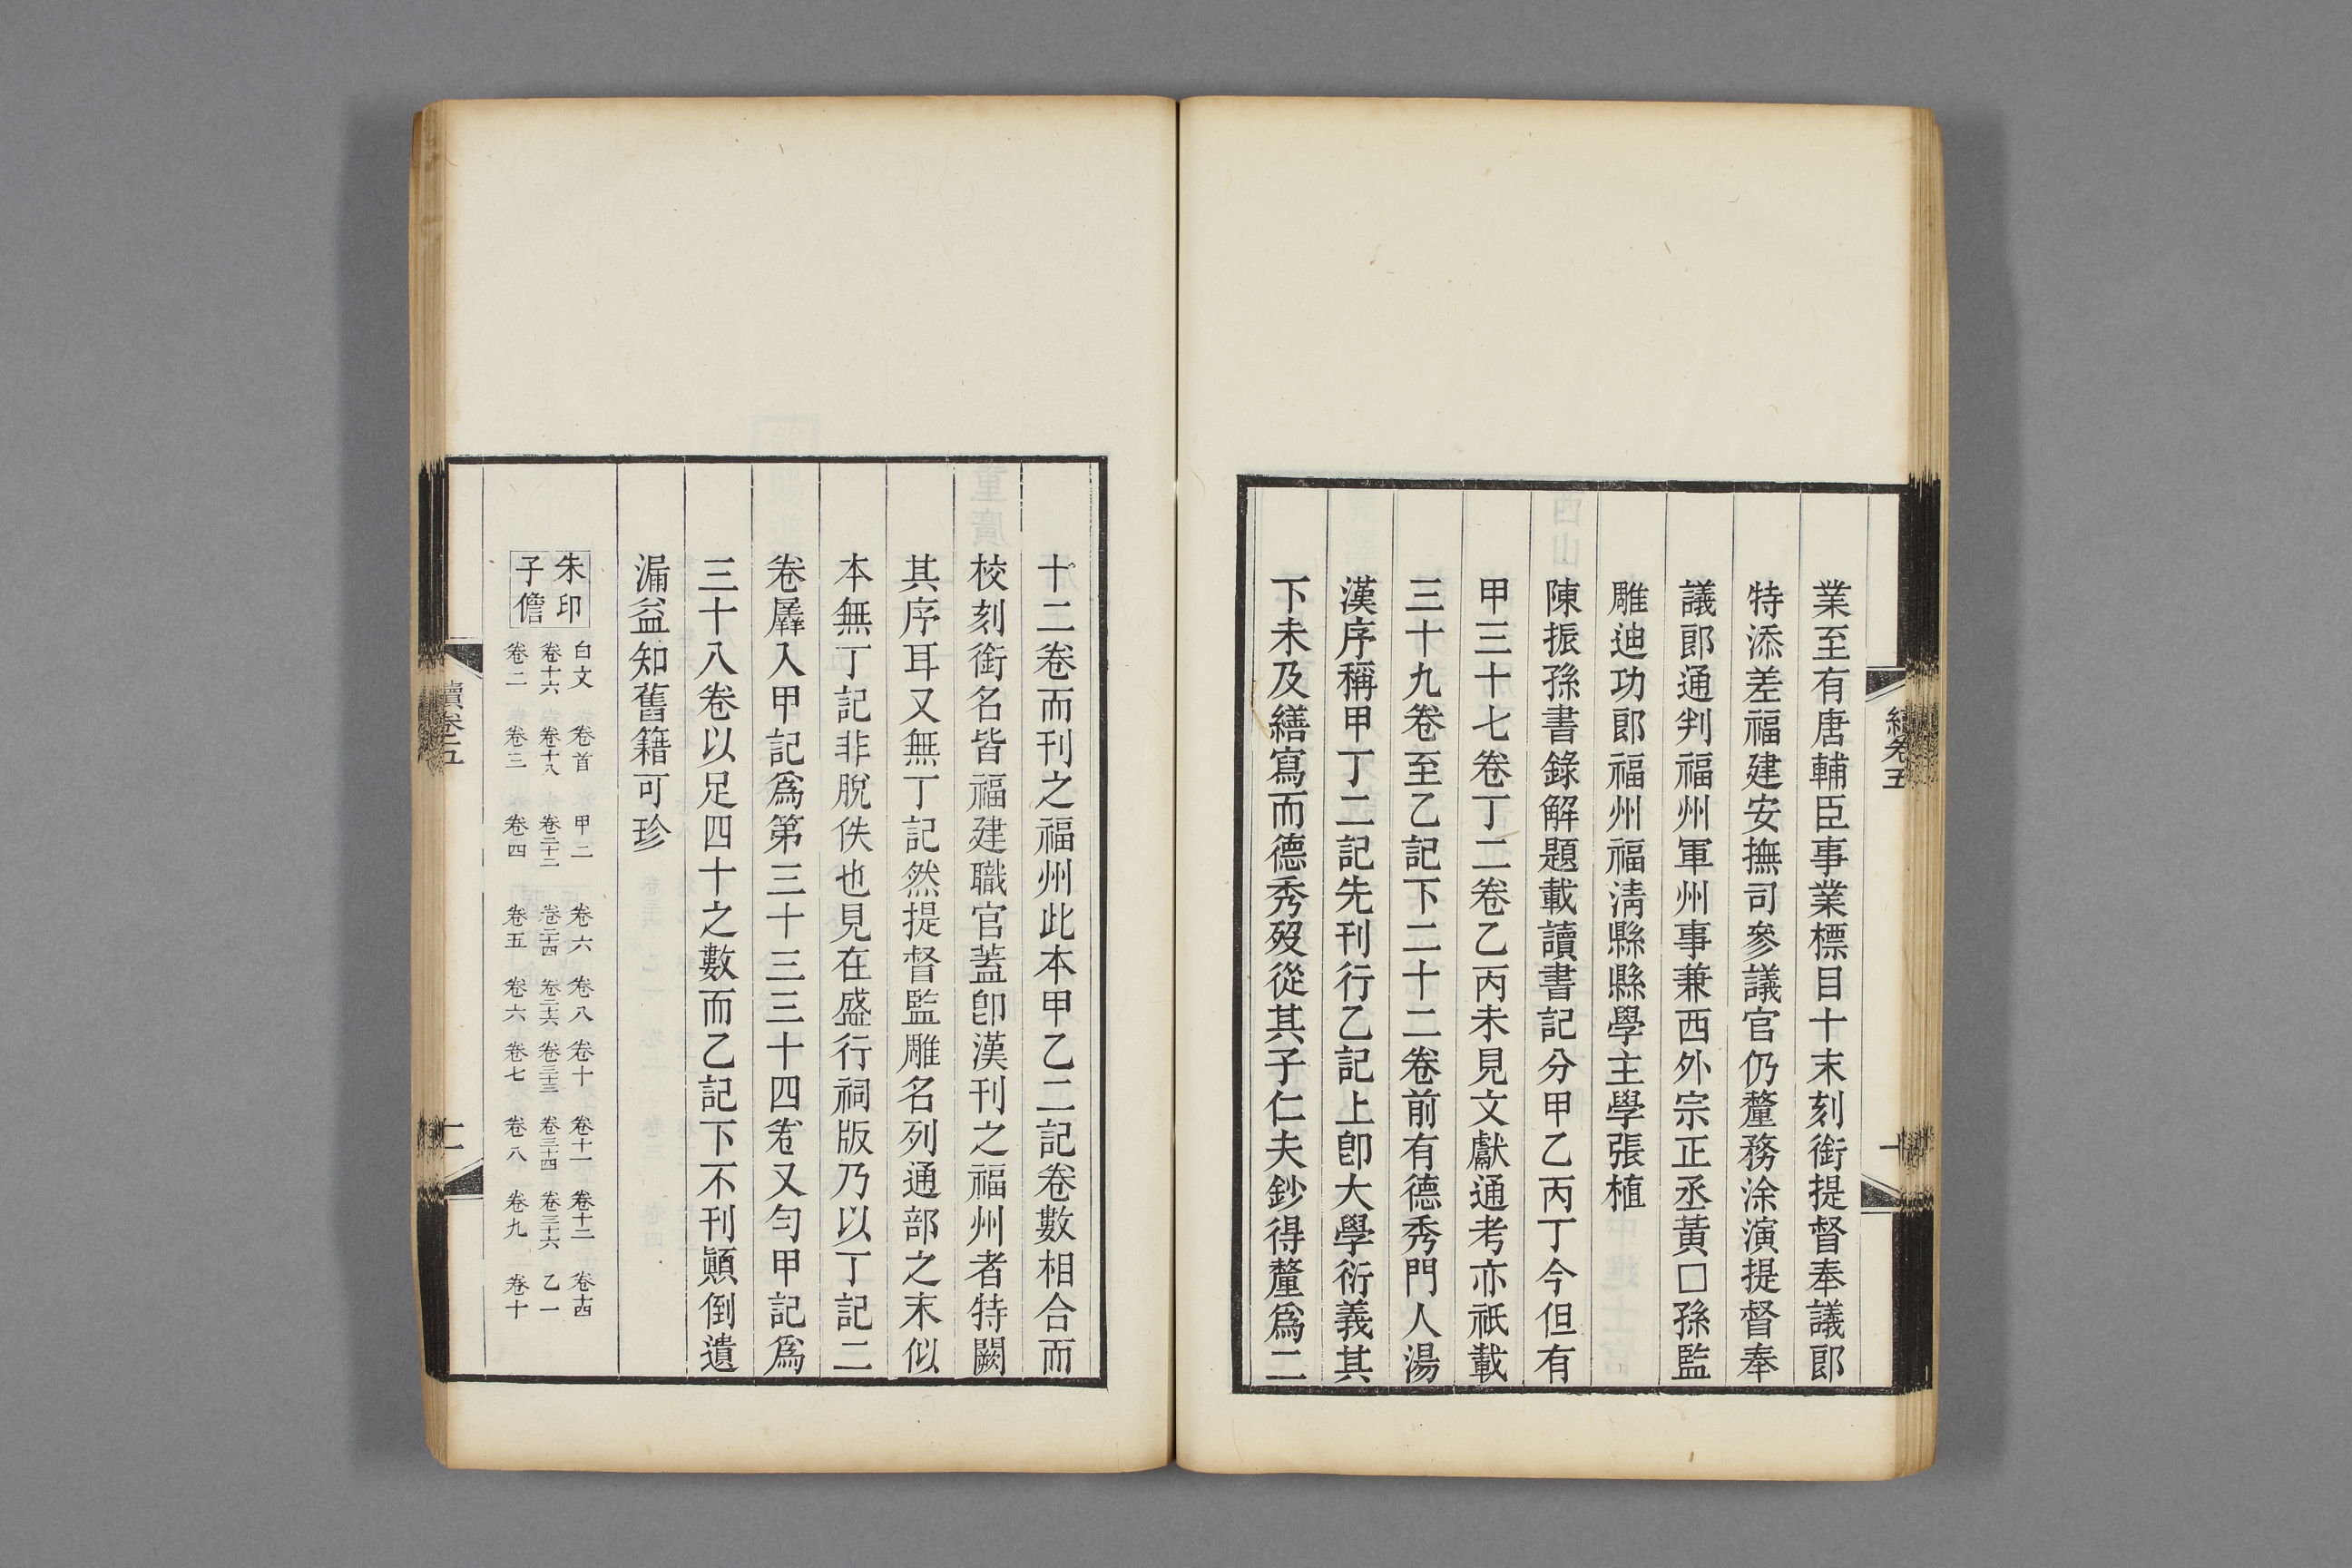 業至有唐輔臣事業標目十末刻銜提督奉議郎
特添差福建安撫司參議官仍釐務涂演提督奉
議郎通判福州軍州事兼西外宗正丞黃□孫監
雕迪功郎福州福淸縣縣學主學張植
陳振孫書錄解題載讀書記分甲乙丙丁今但有
甲三十七卷丁二卷乙丙未見文獻通考亦祇載
三十九卷至乙記下二十二卷前有德秀門人湯
漢序稱甲丁二記先刊行乙記上卽大學衍義其
下未及繕寫而德秀歿從其子仁夫鈔得釐爲二
十二卷而刊之福州此本甲乙二記卷數相合而
校刻銜名皆福建職官蓋卽漢刊之福州者特闕
其序耳又無丁記然提督監雕名列通部之末似
本無丁記非脫佚也見在盛行祠版乃以丁記二
卷羼入甲記爲第三十三三十四卷又勻甲記爲
三十八卷以足四十之數而乙記下不刊顚倒遺
漏益知舊籍可珍
朱印
子儋
白文 卷首 甲二 卷六 卷八 卷十 卷十一 卷十二 卷十四
卷十六 卷十八 卷二十二 卷二十四 卷二十六 卷三十三 卷三十四 卷三十六 乙一
卷二 卷三 卷四 卷五 卷六 卷七 卷八 卷九 卷十
續卷五